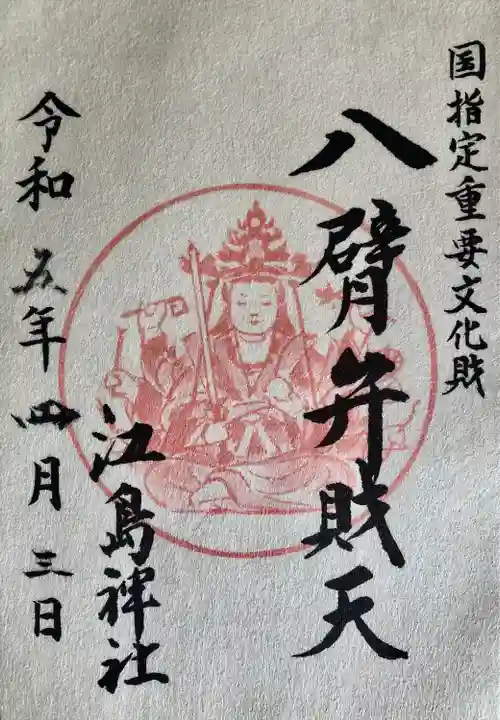 国指定重要文化財
八臂弁財天
江島神社
令和五年四月三日